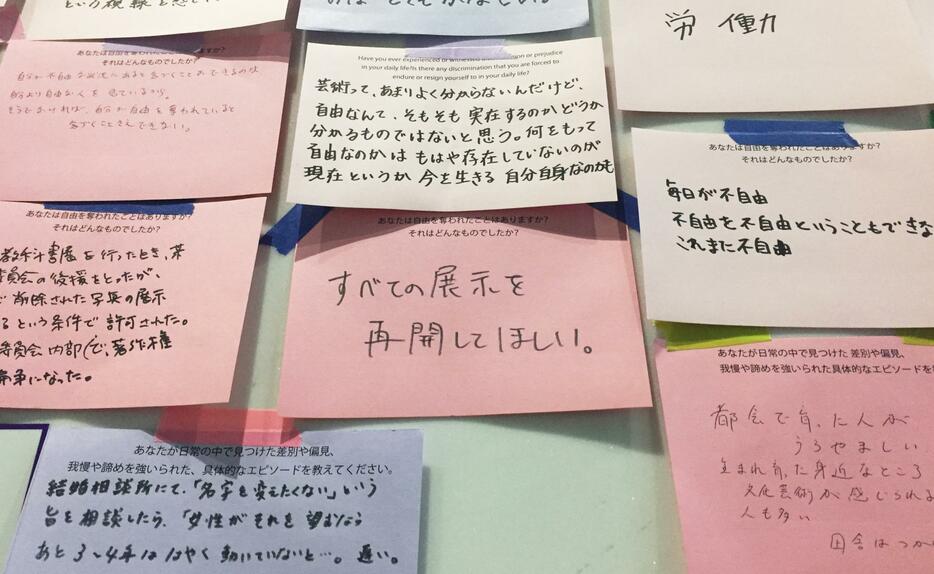 という視線を感じた
労働力
あなたは自由を奪われたことはありますか?
それはどんなものでしたか?
自分が不自由な状況にあると気づくことができるのは
自分が自由を奪われていると
気づくことさえできない。
Have you ever experienced or witnessed discrimination or prejudice
in your daily life?Is there any discrimination that you are forced to
endure or resign yourself to in your daily life?
芸術って、あまりよく分からないんだけど、
自由なんて、そもそも実在するのかどうか
分かるものではないと思う。何をもって
自由なのかは もはや存在していないのが
現在というか 今を生きる 自分自身なのかも
あなたは自由を奪われたことはありますか?
それはどんなものでしたか?
毎日が不自由
不自由を不自由ということもできな
これまた不自由
あなたは自由を奪われたことはありますか?
それはどんなものでしたか?
教科書展を行ったとき、某
委員会の後援をとったが、
で削除された写真の展示
るという条件で許可された。
委員会内部で、著作権
争になった。
あなたは自由を奪われたことはありますか?
それはどんなものでしたか?
すべての展示を
再開してほしい。
あなたが日常の中で見つけた差別や偏見、
我慢や諦めを強いられた、具体的なエピソードを教えてください。
結婚相談所にて、「名字を変えたくない」という
旨を相談したら、「女性がそれを望むなら
あと3〜4年ははやく動いていないと…。遅い。
あなたが日常の中で見つけた 差別や偏見、
我慢や諦めを強いられた具体的なエピソードを
都会で育った人が
うらやましい
生まれ育った身近なところ
文化芸術が感じられる
人も多い
田舎はつか